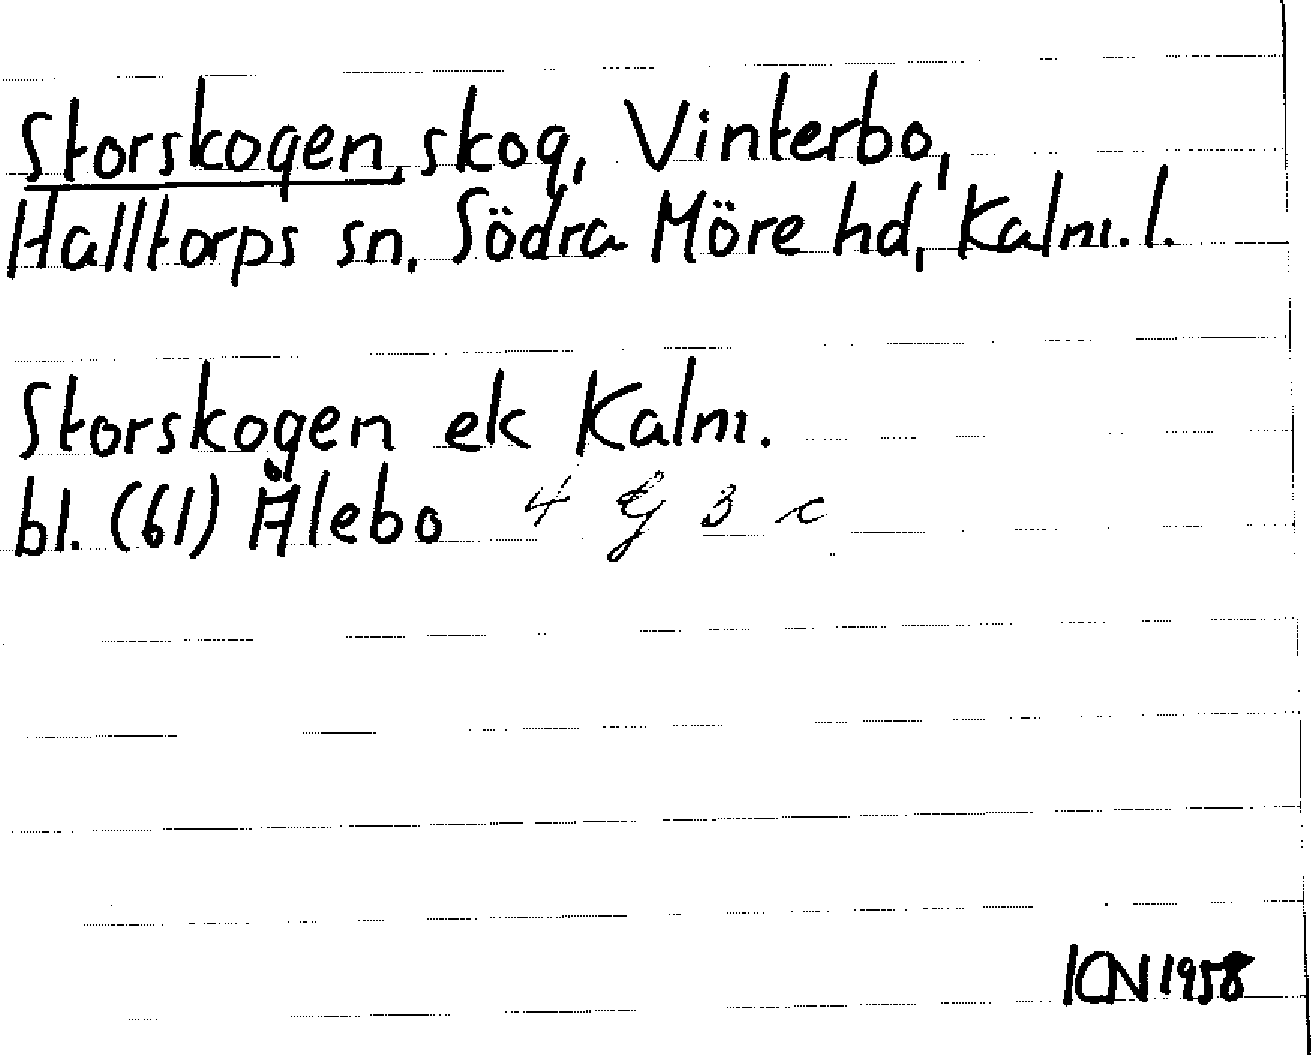 Storskogen, skog, Vinterbo,
Halltorps sn, Södra Möre hd, Kalm. l.
Storskogen ek Kalm.
bl. (61) Ålebo 4 G 3 c
ICN 1958